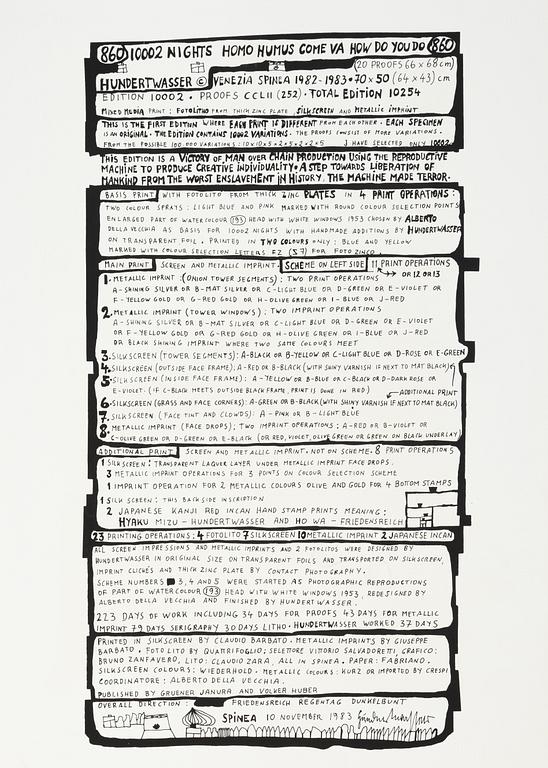 860 10002 NIGHTS HOMO HUMUS COME VA HOW DO YOU DO 860
(20 PROOFS 66 x 68 cm)
HUNDERTWASSER © VENEZIA SPINEA 1982-1983 • 70 x 50 (64 x 43) cm
EDITION 10002 • PROOFS CCLII (252) • TOTAL EDITION 10254
MIXED MEDIA PRINT: FOTOLITHO FROM THICK ZINC PLATE SILKSCREEN AND METALLIC IMPRINT
THIS IS THE FIRST EDITION WHERE EACH PRINT IS DIFFERENT FROM EACH OTHER • EACH SPECIMEN
IS AN ORIGINAL • THE EDITION CONTAINS 10002 VARIATIONS. THE PROOFS CONSIST OF MORE VARIATIONS.
FROM THE POSSIBLE 100 000 VARIATIONS: I HAVE SELECTED ONLY 10002
THIS EDITION IS A VICTORY OF MAN OVER CHAIN PRODUCTION USING THE REPRODUCTIVE
MACHINE TO PRODUCE CREATIVE INDIVIDUALITY • A STEP TOWARDS LIBERATION OF
MANKIND FROM THE WORST ENSLAVEMENT IN HISTORY. THE MACHINE MADE TERROR.
BASIS PRINT WITH FOTOLITHO FROM THICK ZINC PLATES IN 4 PRINT OPERATIONS:
TWO COLOUR SPRAYS: LIGHT BLUE AND PINK MARKED WITH ROUND COLOUR SELECTION POINTS
ENLARGED PART OF WATERCOLOUR (193) HEAD WITH WHITE WINDOWS 1953 CHOSEN BY ALBERTO
DELLA VECCHIA AS BASIS FOR 10002 NIGHTS WITH HANDMADE ADDITIONS BY HUNDERTWASSER
ON TRANSPARENT FOIL • PRINTED IN TWO COLOURS ONLY: BLUE AND YELLOW
MARKED WITH COLOUR SELECTION LETTERS FZ (57) FOR FOTO ZINCO
MAIN PRINT SCREEN AND METALLIC IMPRINT • SCHEME ON LEFT SIDE 11 PRINT OPERATIONS
OR 12 OR 13
1. METALLIC IMPRINT: (ONION TOWER SEGMENTS): TWO PRINT OPERATIONS
A-SHINING SILVER OR B-MAT SILVER OR C-LIGHT BLUE OR D-GREEN OR E-VIOLET OR
F-YELLOW GOLD OR G-RED GOLD OR H-OLIVE GREEN OR I-BLUE OR J-RED
2. METALLIC IMPRINT (TOWER WINDOWS): TWO IMPRINT OPERATIONS
A-SHINING SILVER OR B-MAT SILVER OR C-LIGHT BLUE OR D-GREEN OR E-VIOLET
OR F-YELLOW GOLD OR G-RED GOLD OR H-OLIVE GREEN OR I-BLUE OR J-RED
OR BLACK SHINING IMPRINT WHERE TWO SAME COLOURS MEET
3. SILKSCREEN (TOWER SEGMENTS): A-BLACK OR B-YELLOW OR C-LIGHT BLUE OR D-ROSE OR E-GREEN
4. SILKSCREEN (OUTSIDE FACE FRAME): A-RED OR B-BLACK (WITH SHINY VARNISH IF NEXT TO MAT BLACK)
5. SILKSCREEN (INSIDE FACE FRAME): A-YELLOW OR B-BLUE OR C-BLACK OR D-DARK ROSE OR
E-VIOLET. (IF C-BLACK MEETS OUTSIDE BLACK FRAME, PRINT IS DONE IN RED)
ADDITIONAL PRINT
6. SILKSCREEN (GRASS AND FACE CORNERS): A-GREEN OR B-BLACK (WITH SHINY VARNISH IF NEXT TO MAT BLACK)
7. SILKSCREEN (FACE TINT AND CLOWDS): A-PINK OR B-LIGHT BLUE
8. METALLIC IMPRINT (FACE DROPS); TWO IMPRINT OPERATIONS; A-RED OR B-VIOLET OR
C-OLIVE GREEN OR D-GREEN OR E-BLACK (OR RED, VIOLET, OLIVE GREEN OR GREEN ON BLACK UNDERLAY)
ADDITIONAL PRINT SCREEN AND METALLIC IMPRINT • NOT ON SCHEME • 8 PRINT OPERATIONS
1 SILKSCREEN: TRANSPARENT LAQUER LAYER UNDER METALLIC IMPRINT FACE DROPS.
3 METALLIC IMPRINT OPERATIONS FOR 3 POINTS ON COLOUR SELECTION SCHEME
1 IMPRINT OPERATION FOR 2 METALLIC COLOURS OLIVE AND GOLD FOR 4 BOTTOM STAMPS
1 SILKSCREEN: THIS BACKSIDE INSCRIPTION
2 JAPANESE KANJI RED INCAN HAND STAMP PRINTS MEANING:
HYAKU MIZU - HUNDERTWASSER AND HO WA - FRIEDENSREICH
23 PRINTING OPERATIONS; 4 FOTOLITO 7 SILKSCREEN 10 METALLIC IMPRINT 2 JAPANESE INCAN
ALL SCREEN IMPRESSIONS AND METALLIC IMPRINTS AND 2 FOTOLITOS WERE DESIGNED BY
HUNDERTWASSER IN ORIGINAL SIZE ON TRANSPARENT FOILS AND TRANSPORTED ON SILKSCREEN,
IMPRINT CLICHÉS AND THICK ZINC PLATE BY CONTACT PHOTOGRAPHY.
SCHEME NUMBERS 3, 4 AND 5 WERE STARTED AS PHOTOGRAPHIC REPRODUCTIONS
OF PART OF WATERCOLOUR (193) HEAD WITH WHITE WINDOWS 1953, REDESIGNED BY
ALBERTO DELLA VECCHIA AND FINISHED BY HUNDERTWASSER.
223 DAYS OF WORK INCLUDING 34 DAYS FOR PROOFS 43 DAYS FOR METALLIC
IMPRINT 79 DAYS SERIGRAPHY 30 DAYS LITHO • HUNDERTWASSER WORKED 37 DAYS
PRINTED IN SILKSCREEN BY CLAUDIO BARBATO • METALLIC IMPRINTS BY GIUSEPPE
BARBATO • FOTOLITO BY QUATTRIFOGLIO; SELETTORE VITTORIO SALVADORETTI, GRAFICO:
BRUNO ZANFAVERO, LITO: CLAUDIO ZARA, ALL IN SPINEA. PAPER: FABRIANO.
SILKSCREEN COLOURS: WIEDERHOLD • METALLIC COLOURS: KURZ OR IMPORTED BY CRESPI
COORDINATORE: ALBERTO DELLA VECCHIA.
PUBLISHED BY GRUENER JANURA AND VOLKER HUBER
OVERALL DIRECTION: FRIEDENSREICH REGENTAG DUNKELBUNT
SPINEA 10 NOVEMBER 1983